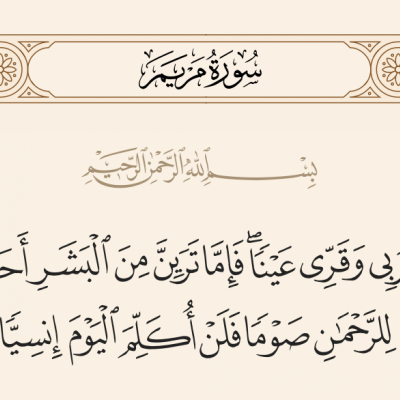 سُورَةُ مَرْيَمَ
بِسْمِ اللَّهِ الرَّحْمَٰنِ الرَّحِيمِ
وَقَرِّي عَيْنًا ۖ فَإِمَّا تَرَيِنَّ مِنَ الْبَشَرِ
لِلرَّحْمَٰنِ صَوْمًا فَلَنْ أُكَلِّمَ الْيَوْمَ إِنسِيًّا